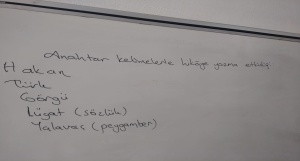 Anahtar kelimelerle hikâye yazma etkinliği
Hakan
Türk
Görgü
Lügat (sözlük)
Yalavaç (peygamber)